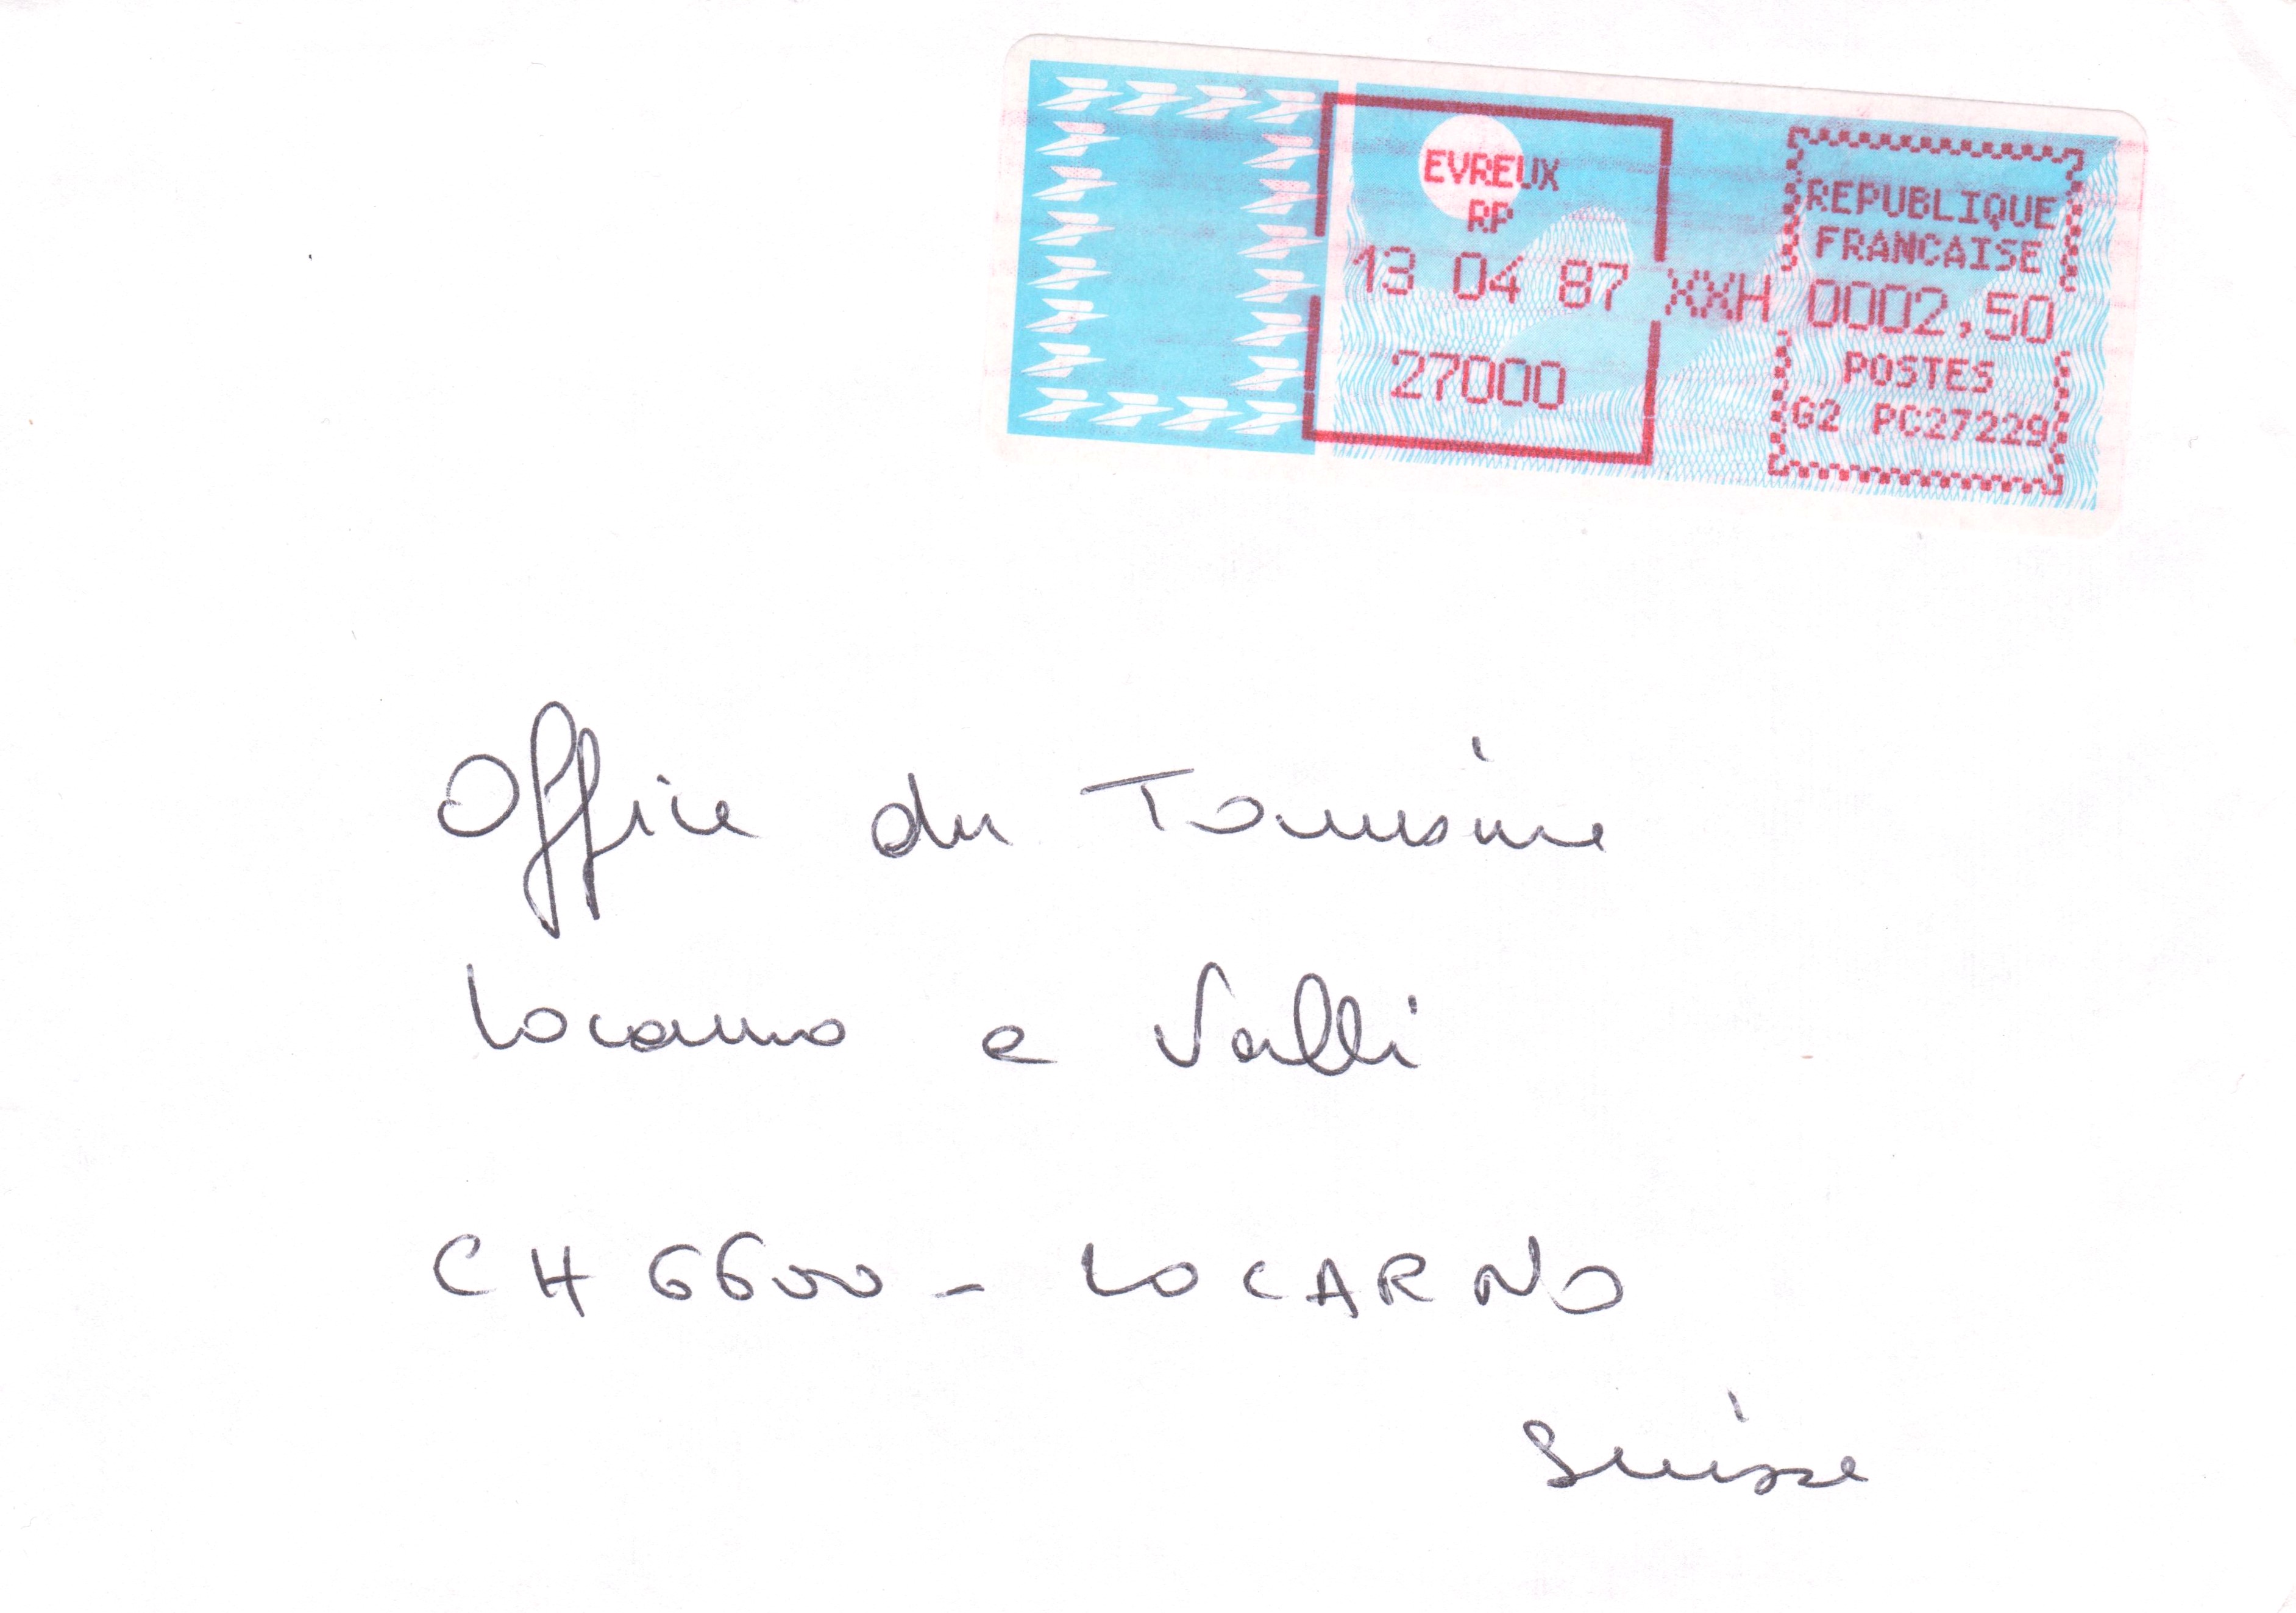 EVREUX
RP
13 04 87 XXH
27000
REPUBLIQUE
FRANCAISE
0002,50
POSTES
G2 PC27229
Office du Tourisme
Locarno e Valli
CH 6600 - LOCARNO
Suisse